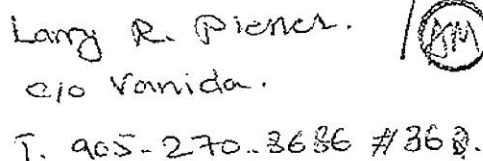 Larry R. Pienes. AM
c/o Vanida.
T. 905-270-3686 #368.